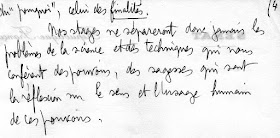 du "pourquoi", celui des finalités.
14
Nos stages ne sépareront donc jamais les
problèmes de la science et des techniques qui nous
confèrent des pouvoirs, des sagesses qui sont
la réflexion sur le sens et l'usage humain
de ces pouvoirs.